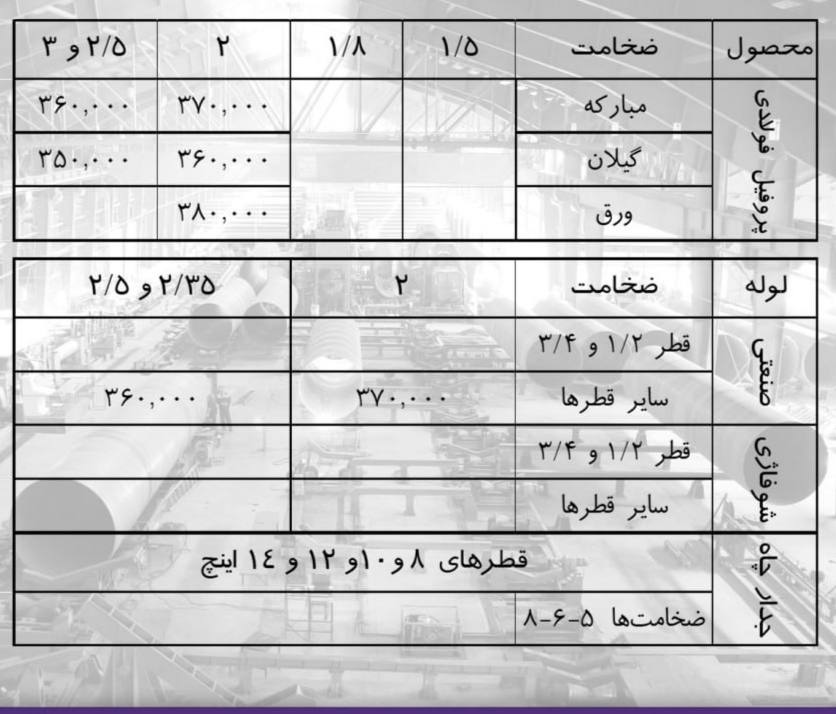 محصول ضخامت ۱/۵ ۱/۸ ۲ ۲/۵ و ۳
پروفیل فولادی
مبارکه ۳۷۰,۰۰۰ ۳۶۰,۰۰۰
گیلان ۳۶۰,۰۰۰ ۳۵۰,۰۰۰
ورق ۳۸۰,۰۰۰
لوله ضخامت ۲ ۲/۳۵ و ۲/۵
صنعتی
قطر ۱/۲ و ۳/۴
سایر قطرها ۳۷۰,۰۰۰ ۳۶۰,۰۰۰
شوفاژی
قطر ۱/۲ و ۳/۴
سایر قطرها
جدار چاه
قطرهای ۸ و ۱۰و ۱۲ و ۱٤ اینچ
ضخامت‌ها ۵-۶-۸